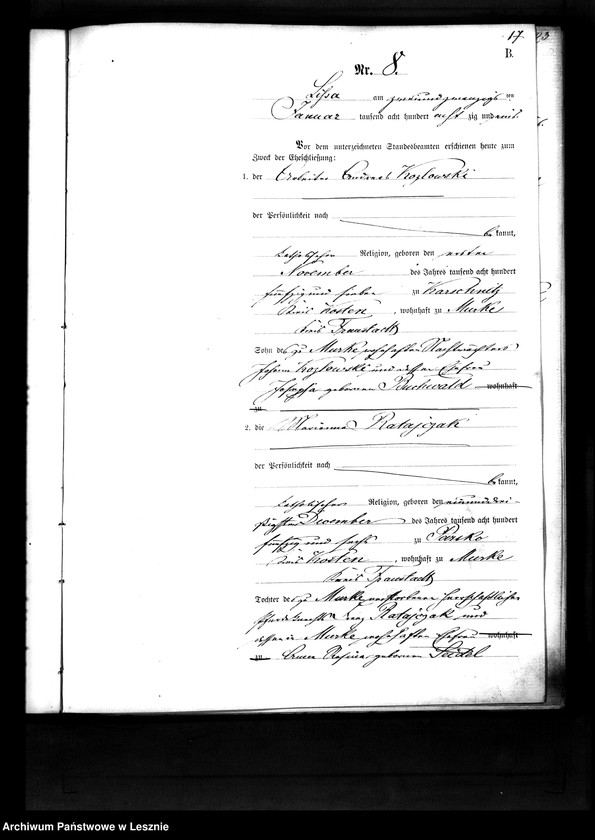 17 23
B.
Nr. 8.
Lissa am zweiundzwanzigs ten
Januar tausend acht hundert acht zig und
Vor dem unterzeichneten Standesbeamten erschienen heute zum
Zweck der Eheschließung:
1. der Arbeiter Andreas Kozlowski
der Persönlichkeit nach
be kannt,
katholischer Religion, geboren den ersten
November des Jahres tausend acht hundert
fünfzig und sieben zu Karschnitz
Kreis Kosten, wohnhaft zu Murke
Kreis Fraustadt
Sohn des zu Murke wohnhaften Nachtwächters
Johann Kozlowski und dessen Ehefrau
Josepha geborenen Buchwald wohnhaft
zu
2. die Marianna Ratajczak
der Persönlichkeit nach
be kannt,
katholischer Religion, geboren den einunddrei-
ßigsten December des Jahres tausend acht hundert
fünfzig und sechs zu Parsko
Kreis Kosten, wohnhaft zu Murke
Kreis Fraustadt
Tochter des zu Murke verstorbenen herrschaftlichen
Ratajczak und
dessen in Murke wohnhaften Ehefrau wohnhaft
zu Anna Rosina geborenen Seidel
Archiwum Państwowe w Lesznie